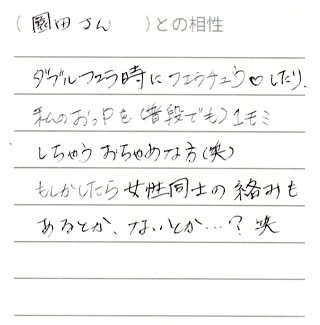 (園田さん)との相性
ダブルフェラ時にフェラチュウ♡したり、
私のおっPを(普段でも)1モミ
しちゃうおちゃめな方(笑)
もしかしたら女性同士の絡みも
あるとか、ないとか…?笑